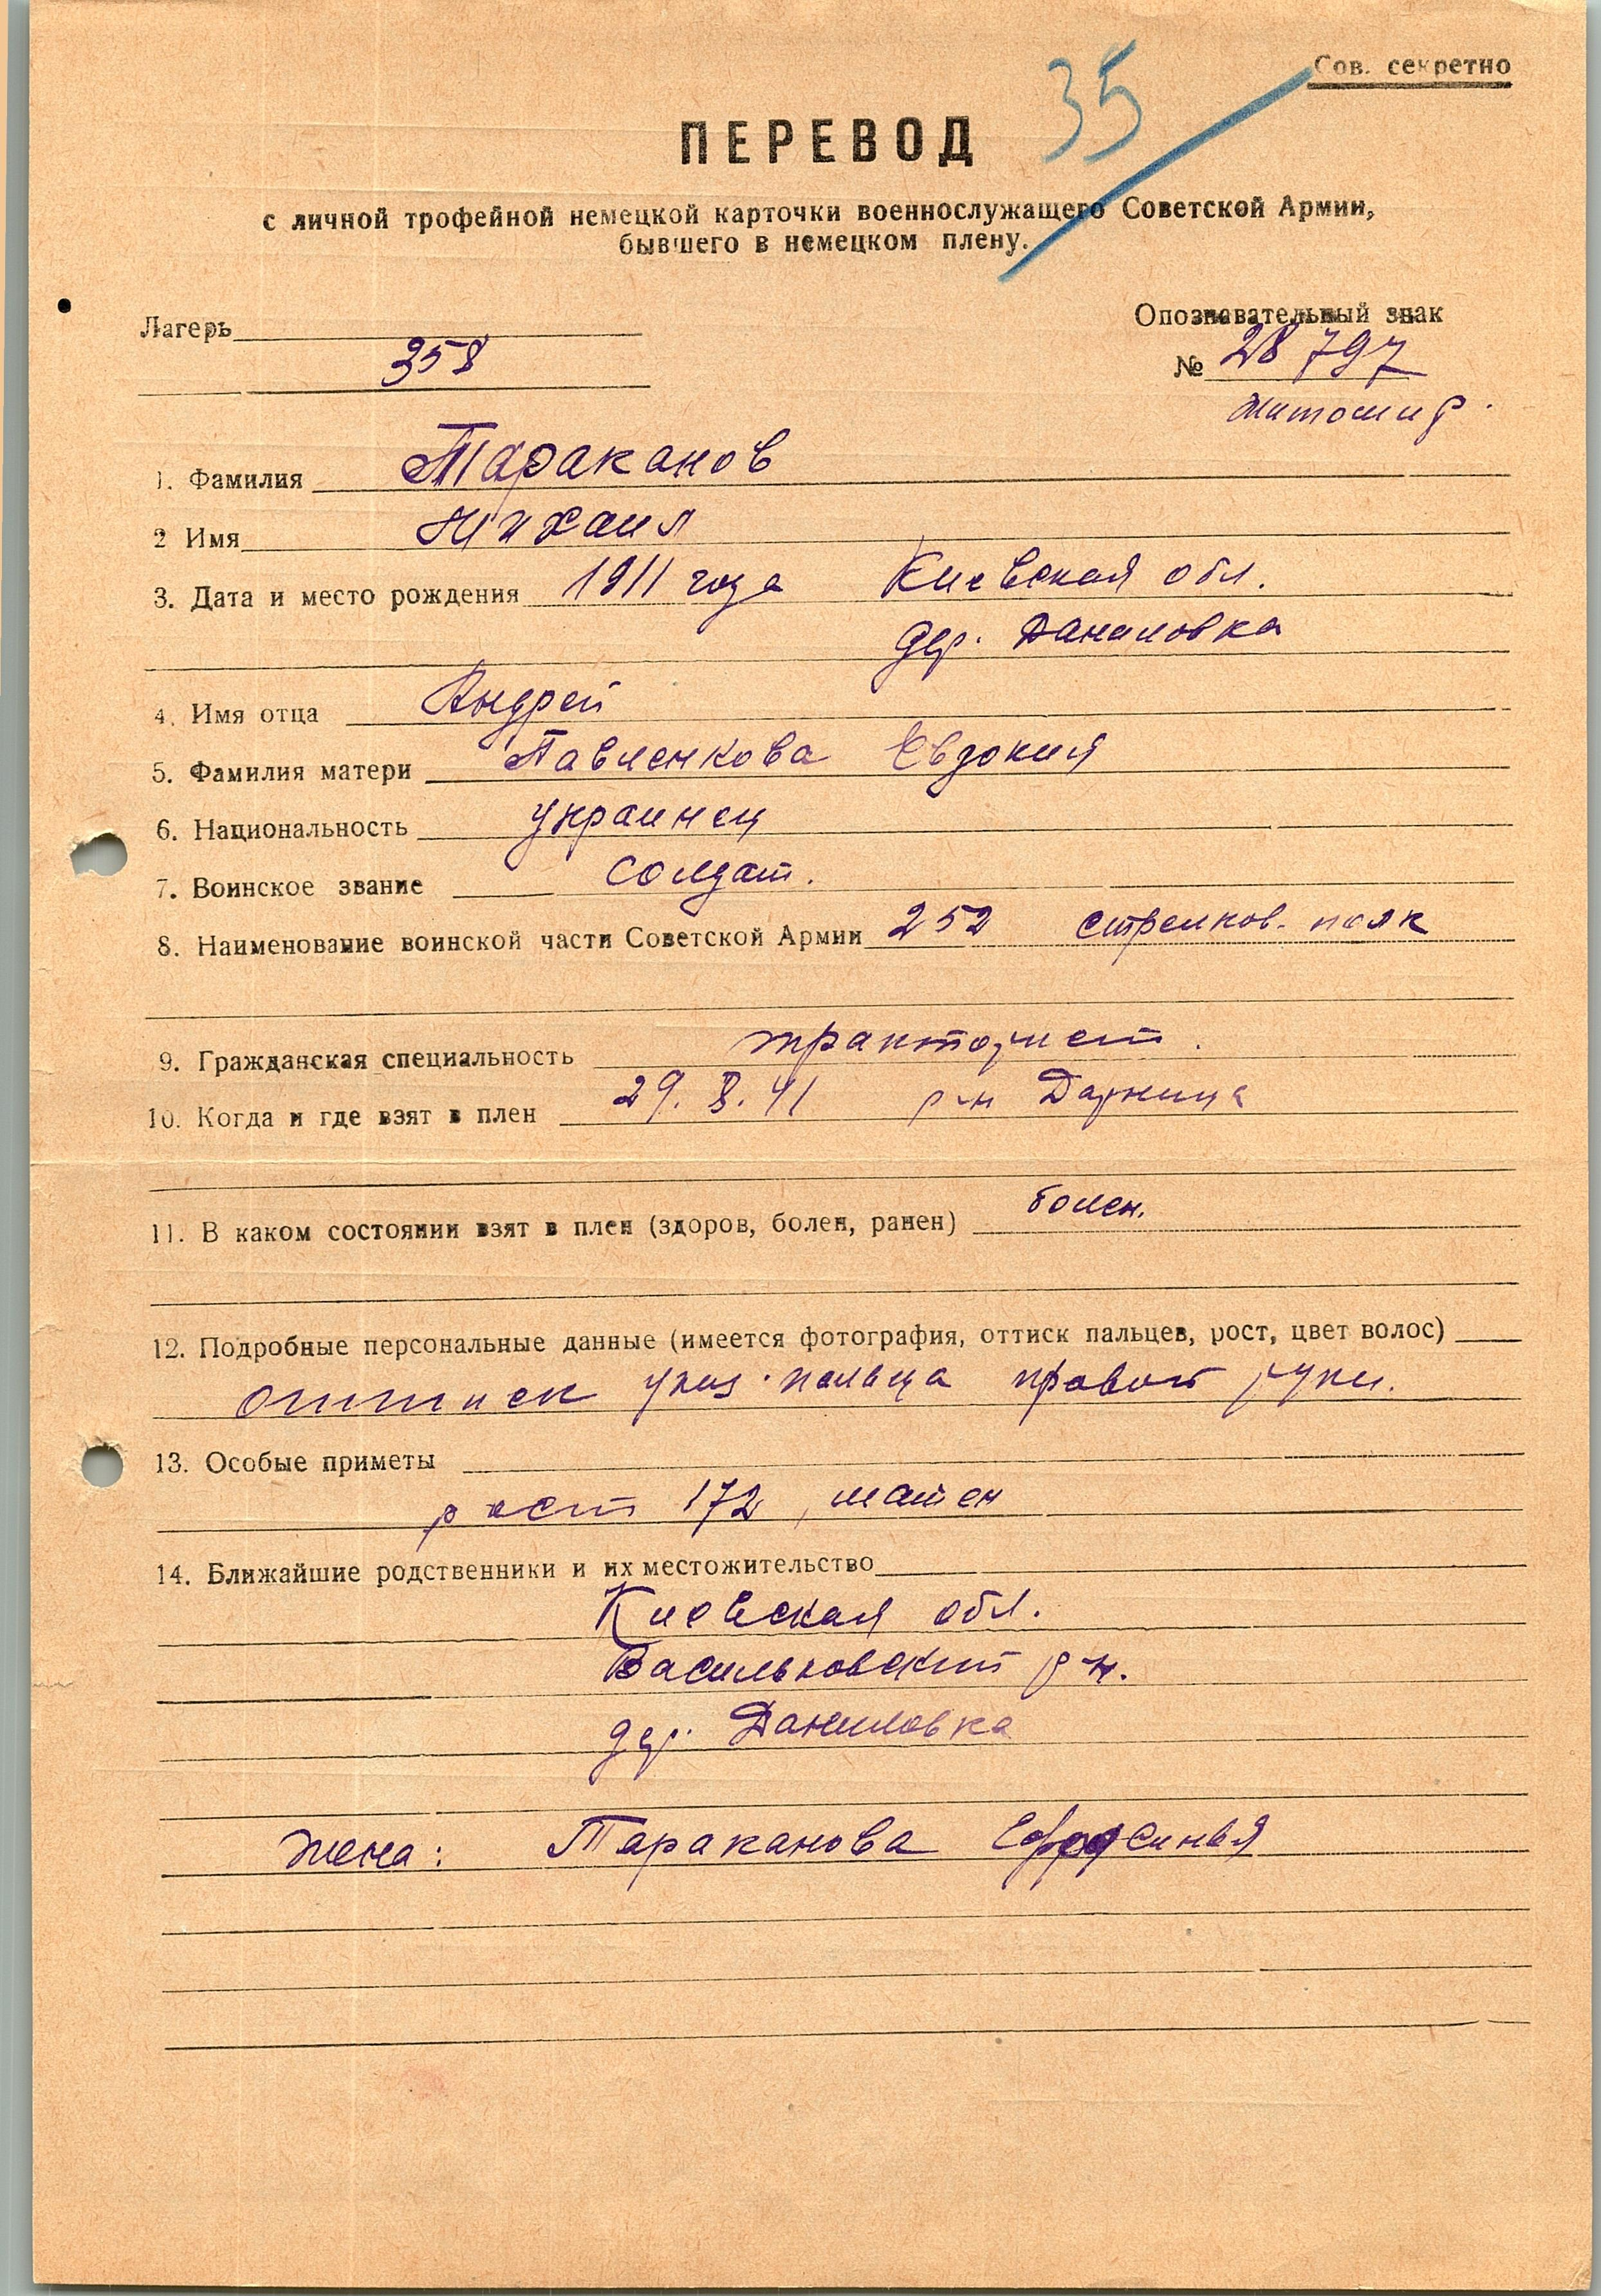 Сов. секретно
35
ПЕРЕВОД
с личной трофейной немецкой карточки военнослужащего Советской Армии,
бывшего в немецком плену.
Лагерь
358
Опознавательный знак
№ 28 797
Житомир.
1. Фамилия Тараканов
2 Имя Михаил
3. Дата и место рождения 1911 года Киевская обл.
дер. Даниловка
4. Имя отца Андрей
5. Фамилия матери Павленкова Евдокия
6. Национальность украинец
7. Воинское звание солдат.
8. Наименование воинской части Советской Армии 252 стрелков. полк
9. Гражданская специальность тракторист.
10. Когда и где взят в плен 29. 8. 41 р-н Дарница
11. В каком состоянии взят в плен (здоров, болен, ранен) болен.
12. Подробные персональные данные (имеется фотография, оттиск пальцев, рост, цвет волос)
оттиск указ. пальца правой руки.
13. Особые приметы
рост 172, шатен
14. Ближайшие родственники и их местожительство
Киевская обл.
Васильковский р-н.
дер. Даниловка
жена: Тараканова Ефросинья